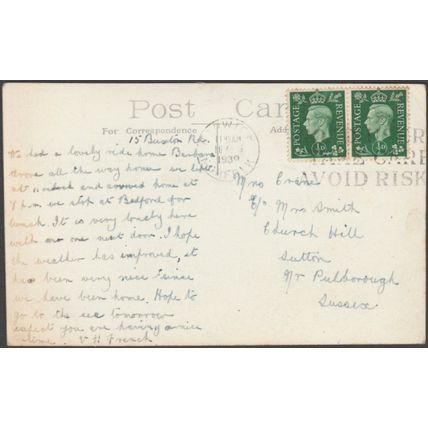 Post Card
For Correspondence
15 Buxton Rd.
We had a lovely ride home Barbara
drove all the way home we left
at clock and arrived home at
7 pm we stop at Bedford for
lunch. It is very lonely here
with no one next door. I hope
the weather has improved, it
has been very nice since
we have been home. Hope to
go to the sea tomorrow
expect you are having a nice
time. V H French
10 AM
1939
POSTAGE REVENUE
½D
POSTAGE REVENUE
½D
TAKE CARE
AVOID RISK
Mrs Crane
C/o Mrs Smith
Church Hill
Sutton
Nr Pulborough
Sussex